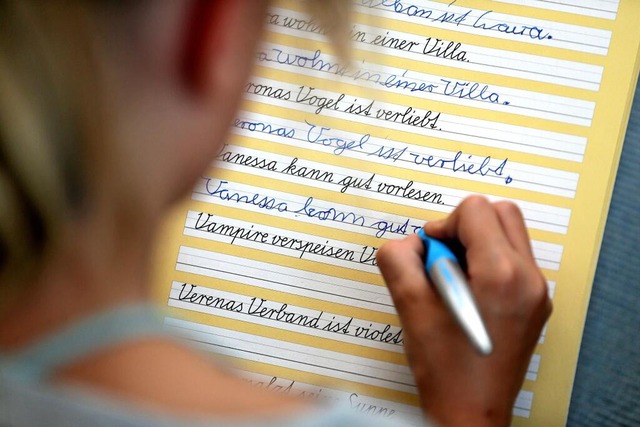 ist Lava.
wohnt in einer Villa.
wohnt in einer Villa.
Vogel ist verliebt.
Vogel ist verliebt.
Vanessa kann gut vorlesen.
Vanessa kann gut
Vampire verspeisen
Verenas Verband ist violett